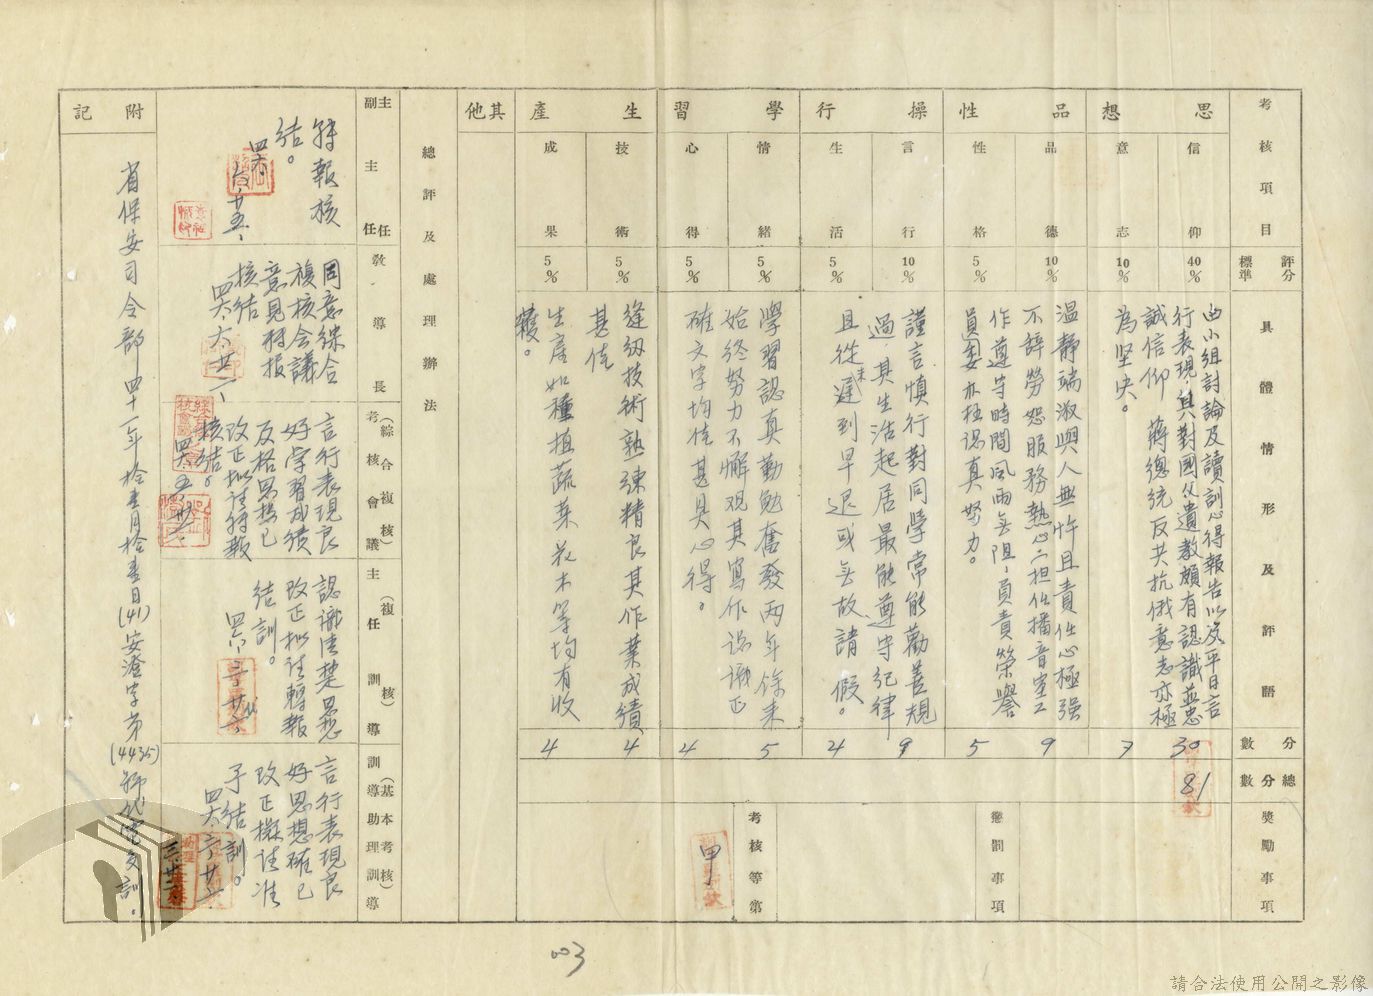 考核項目
評分標準
具體情形及評語
分數
總分數
獎勵事項
思想
信仰
40%
由小組討論及讀訓心得報告以及平日言
行表現，其對國父遺教頗有認識並忠
誠信仰　蔣總統反共抗俄意志亦極
為堅決。
30
意志
10%
7
品性
品德
10%
溫靜端淑與人無忤且責任心極強
不辭勞怨服務熱心，担任播音室工
作遵守時間風雨無阻，員責榮譽
9
性格
5%
認真努力。
5
操行
言行
10%
謹言慎行對同學常能勸善規
過，其生活起居最能遵守紀律
且從未遲到早退或無故請假。
9
生活
5%
4
學習
情緒
5%
學習認真勤勉奮發兩年餘來
始終努力不懈觀其寫作認識正
確文字均佳甚具心得。
5
心得
5%
4
生產
技術
5%
縫紉技術熟練精良其作業成績
甚佳
4
成果
5%
生產如種植蔬菜花木等均有收
穫。
4
其他
81
懲罰事項
考核等第
甲
總評及處理辦法
訓導助理訓導
（基本考核）
言行表現良
好思想確已
改正擬請准
予結訓。
主任訓導
（複核）
認識清楚思想
改正擬請轉報
結訓。
考核會議
（綜合複核）
言行表現良
好學習成績
及格思想已
改正擬請轉報
核結。
教導長
同意綜合
複核會議
意見轉報
核結
主任
副主任
轉報核
結。
附記
省保安司令部四十一年拾壹月拾壹日(41)安澄字第(4435)號代電交訓。
003
請合法使用公開之影像